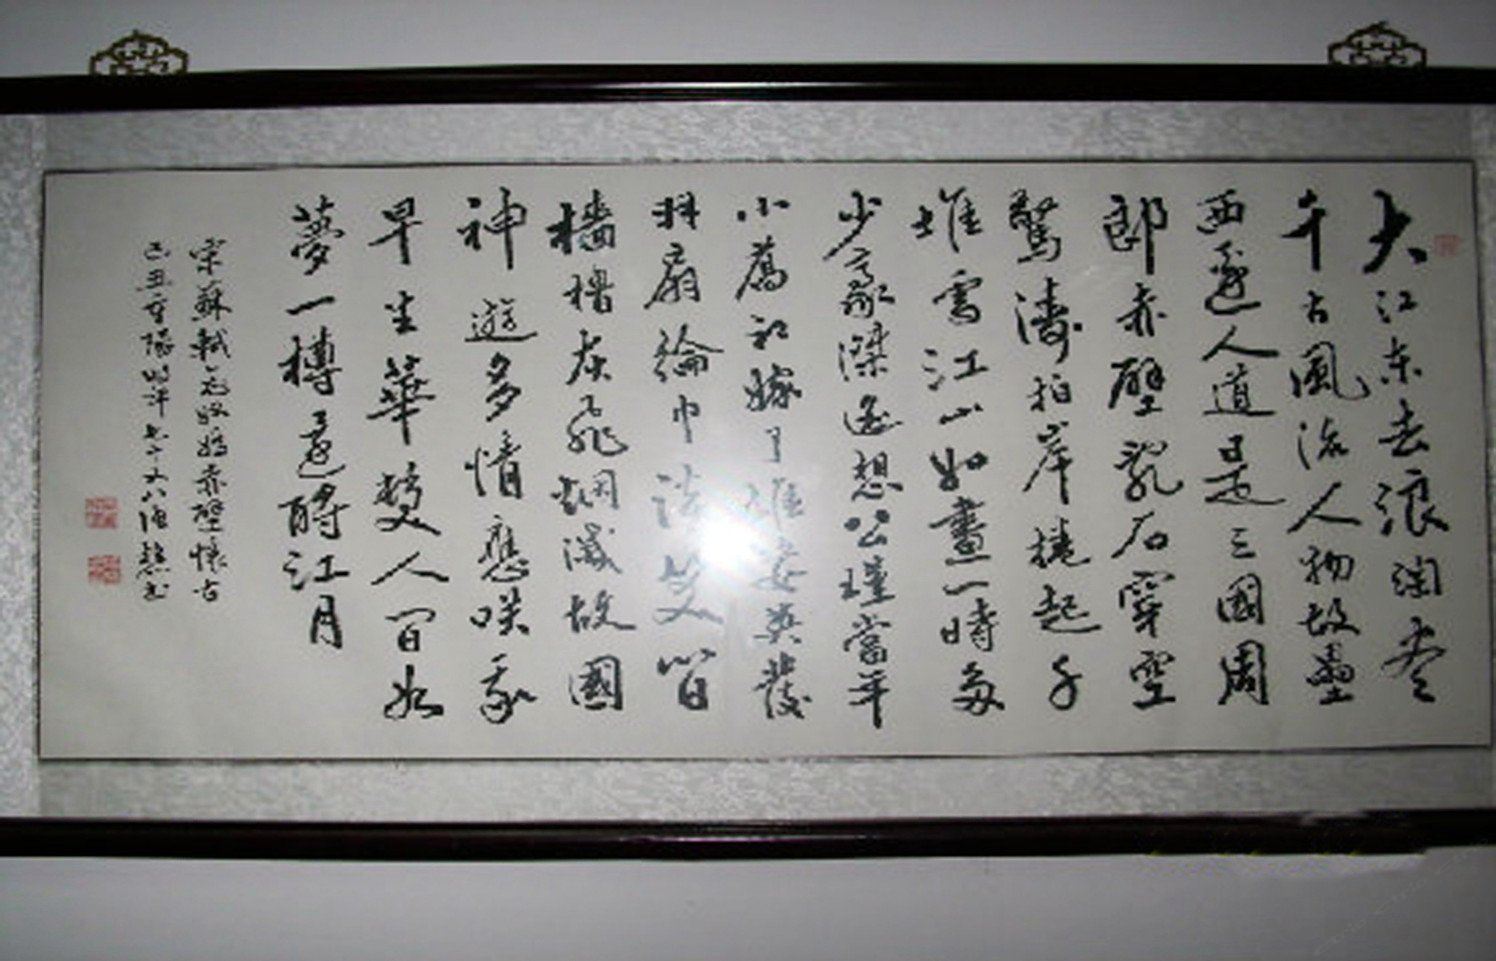 大江东去浪淘尽
千古风流人物故垒
西邊人道是三國周
郎赤壁亂石穿空
驚濤拍岸捲起千
堆雪江山如畫一時多
少豪傑遥想公瑾當年
小喬初嫁了雄姿英發
羽扇綸巾談笑間
檣櫓灰飛烟滅故國
神遊多情應笑我
早生華髮人间如
夢一樽還酹江月
宋蘇軾念奴嬌赤壁懷古
己丑重陽時年七十又八